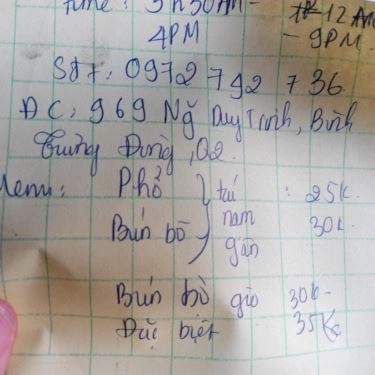 Time: 5h30AM - 12AM
4PM - 9PM.
SĐT: 0972 792 736.
ĐC: 969 Ng Duy Trinh, Bình
Trưng Đông, Q2.
Menu: Phở tái : 25K.
Bún bò nạm 30k.
gân
Bún bò giò 30k
Đặc biệt 35K